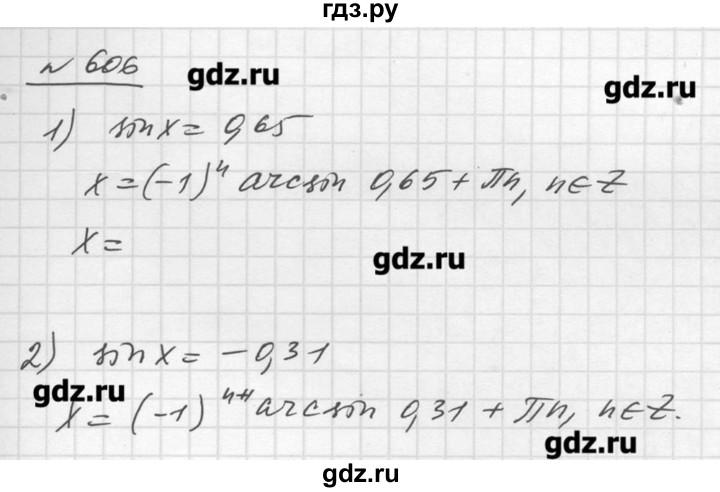 гдз.ру
№ 606
gdz.ru
gdz.ru
1) sin x = 0,65
x = (-1)ⁿ arcsin 0,65 + Πn, n∈Z
x =
gdz.ru
2) sin x = -0,31
gdz.ru
x = (-1)ⁿ⁺¹ arcsin 0,31 + Πn, n∈Z.
gdz.ru
gdz.ru